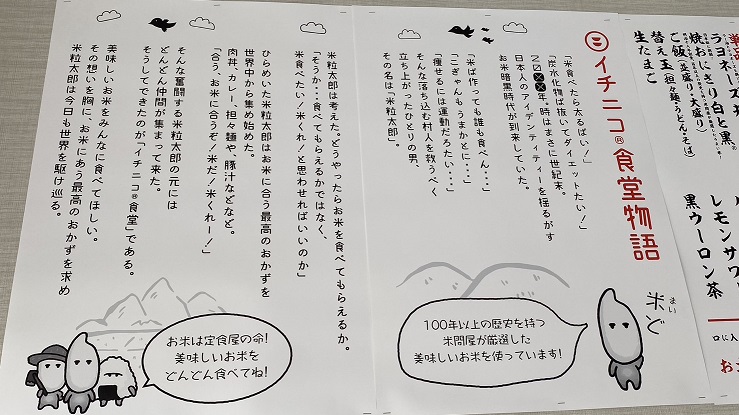 単品
ラヨネーズ丼
焼おにぎり白と黒
ご飯(並盛り・大盛り)
替え玉(担々麺・うどん・そば)
生たまご
レモンサワー
黒ウーロン茶
イチニコ®食堂物語
「米食べたら太るばい！」
「炭水化物ば抜いてダイエットたい！」
20××年。時はまさに世紀末。
日本人のアイデンティティーを揺るがす
お米暗黒時代が到来していた。
「米ば作っても誰も食べん・・・」
「こぎゃんもうまかとに・・・」
「痩せるには運動だろたい・・・」
そんな落ち込む村人を救うべく
立ち上がったひとりの男、
その名は「米粒太郎」。
米ど
まい
100年以上の歴史を持つ
米問屋が厳選した
美味しいお米を使っています！
米粒太郎は考えた。どうやったらお米を食べてもらえるか。
「そうか・・・食べてもらえるかではなく、
米食べたい！米くれ！と思わせればいいのか」
ひらめいた米粒太郎はお米に合う最高のおかずを
世界中から集め始めた。
肉丼、カレー、担々麺や、豚汁などなど。
「合う、お米に合うぞ！米だ！米くれー！」
そんな奮闘する米粒太郎の元には
どんどん仲間が集まって来た。
そうしてできたのが「イチニコ®食堂」である。
美味しいお米をみんなに食べてほしい。
その想いを胸に、お米にあう最高のおかずを求め
米粒太郎は今日も世界を駆け巡る。
お米は定食屋の命！
美味しいお米を
どんどん食べてね！